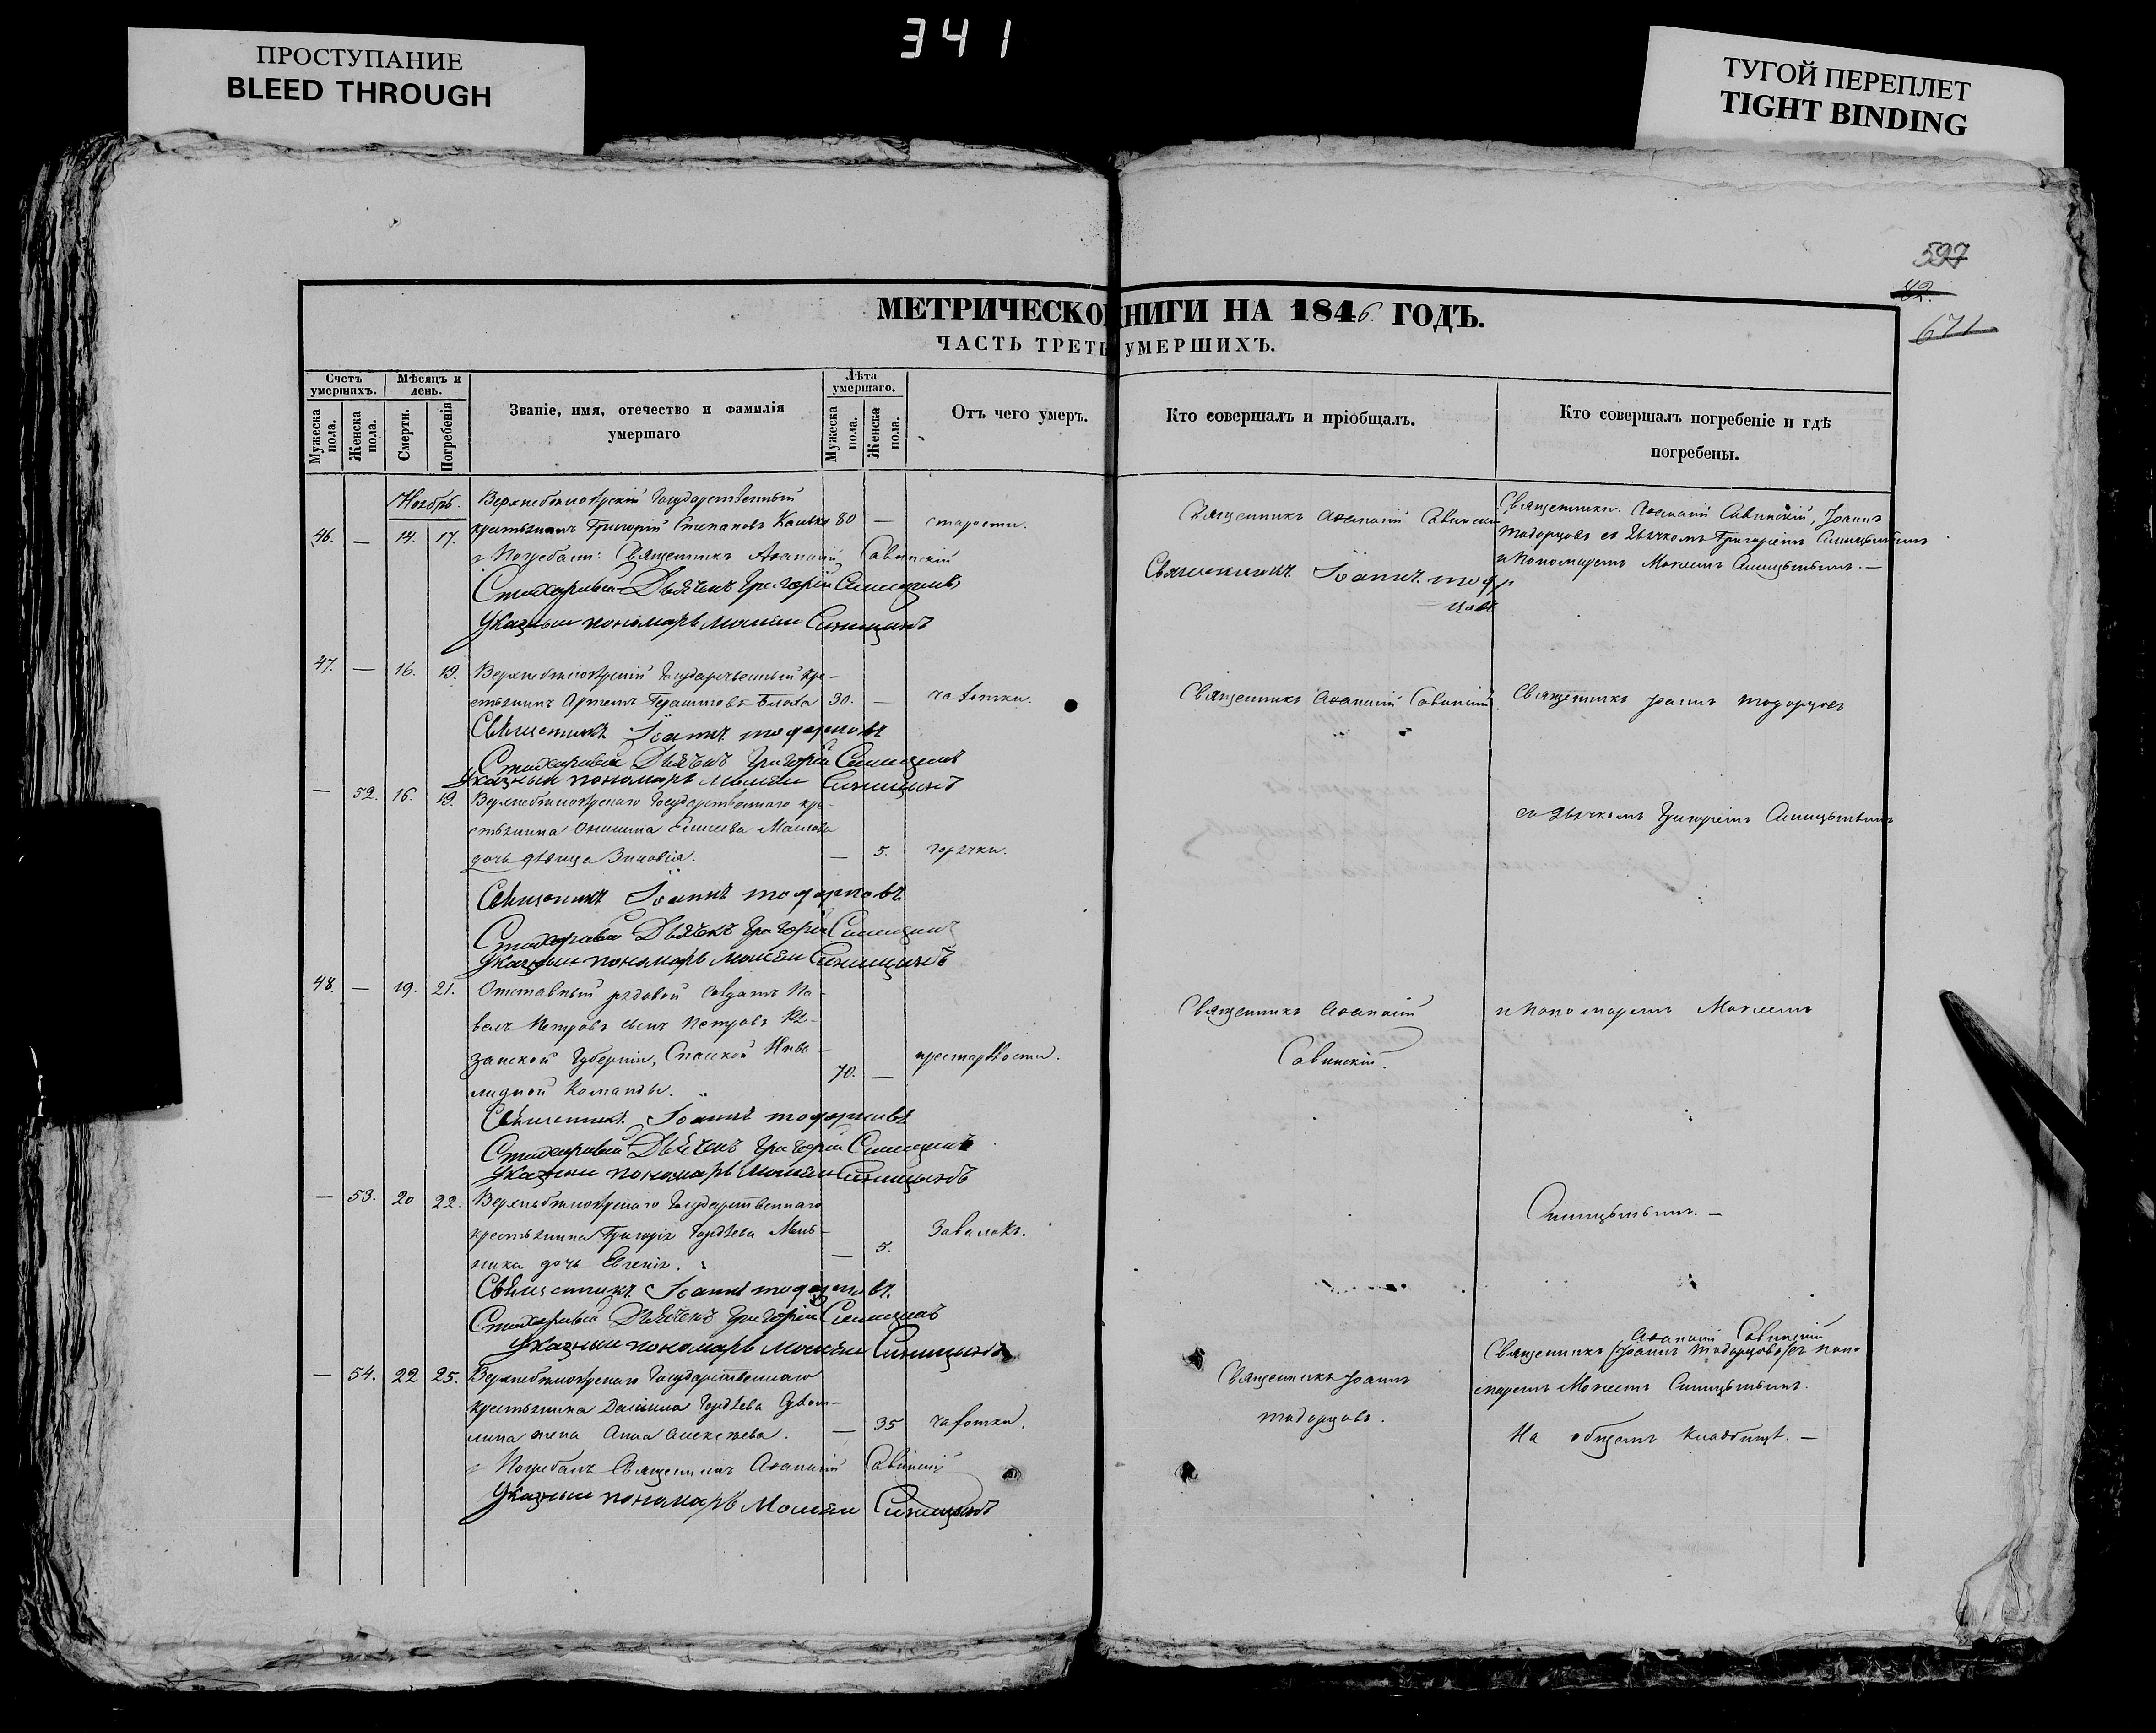 341
ПРОСТУПАНИЕ
BLEED THROUGH
ТУГОЙ ПЕРЕПЛЕТ
TIGHT BINDING
597
82.
671
МЕТРИЧЕСКО НИГИ НА 1846 ГОДЪ.
ЧАСТЬ ТРЕТЬ УМЕРШИХЪ.
Счетъ умершихъ.
Мѣсяцъ и день.
Званіе, имя, отечество и фамилія умершаго
Лѣта умершаго.
Отъ чего умеръ.
Кто совершалъ и пріобщалъ.
Кто совершалъ погребеніе и гдѣ погребены.
Мужеска пола.
Женска пола.
Смерти.
Погребенія
Мужеска пола.
Женска пола.
Ноябрь.
Государственный
46. — 14. 17. крестьянинъ Григорій Степановъ 80 — старости.
Погребали: Священникъ Аѳанасій Савинскій
Стихарный Дьячекъ Григорій Синицынъ
Указный пономарь Моисей Синицынъ
Священникъ Аѳанасій Савинскій
Священникъ Іоаннъ
Священники Аѳанасій Савинскій, Іоаннъ
съ Дьячкомъ Григоріемъ Синицынымъ
и Пономаремъ Моисеемъ Синицынымъ. —
47. — 16. 19. Государственный кре-
стьянинъ Артемъ Герасимовъ Блоха 30. — чахотки.
Священникъ Іоаннъ
Стихарный Дьячекъ Григорій Синицынъ
Указный пономарь Моисей Синицынъ
Священникъ Аѳанасій Савинскій
Священникъ Іоаннъ
— 52. 16. 19. Государственнаго кре-
стьянина Елисеева
дочь дѣвица Зиновія. — 5. горячки.
Священникъ Іоаннъ
Стихарный Дьячекъ Григорій Синицынъ
Указный пономарь Моисей Синицынъ
съ Дьячкомъ Григоріемъ Синицынымъ
48. — 19. 21. Отставный рядовой солдатъ Па-
велъ Петровъ сынъ Петровъ Ря-
занской Губерніи, Спаской Инва-
лидной Команды. 70. — престарѣлости.
Священникъ Іоаннъ
Стихарный Дьячекъ Григорій Синицынъ
Указный пономарь Моисей Синицынъ
Священникъ Аѳанасій
Савинскій.
и Пономаремъ Моисеемъ
— 53. 20 22. Государственнаго
крестьянина Григорія Гордѣева Мель-
ника дочь Евгенія. — 5. Завалокъ.
Священникъ Іоаннъ
Стихарный Дьячекъ Григорій Синицынъ
Указный пономарь Моисей Синицынъ
Синицынымъ. —
— 54. 22 25. Государственнаго
крестьянина Даніила Гордѣева
жена Анна Алексѣева. — 35 чахотки.
Погребалъ Священникъ Аѳанасій Савинскій
Указный пономарь Моисей Синицынъ
Священникъ Іоаннъ
Аѳанасій Савинскій
Священникъ (Іоаннъ) съ поно-
маремъ Моисеемъ Синицынымъ.
На общемъ кладбищѣ. —